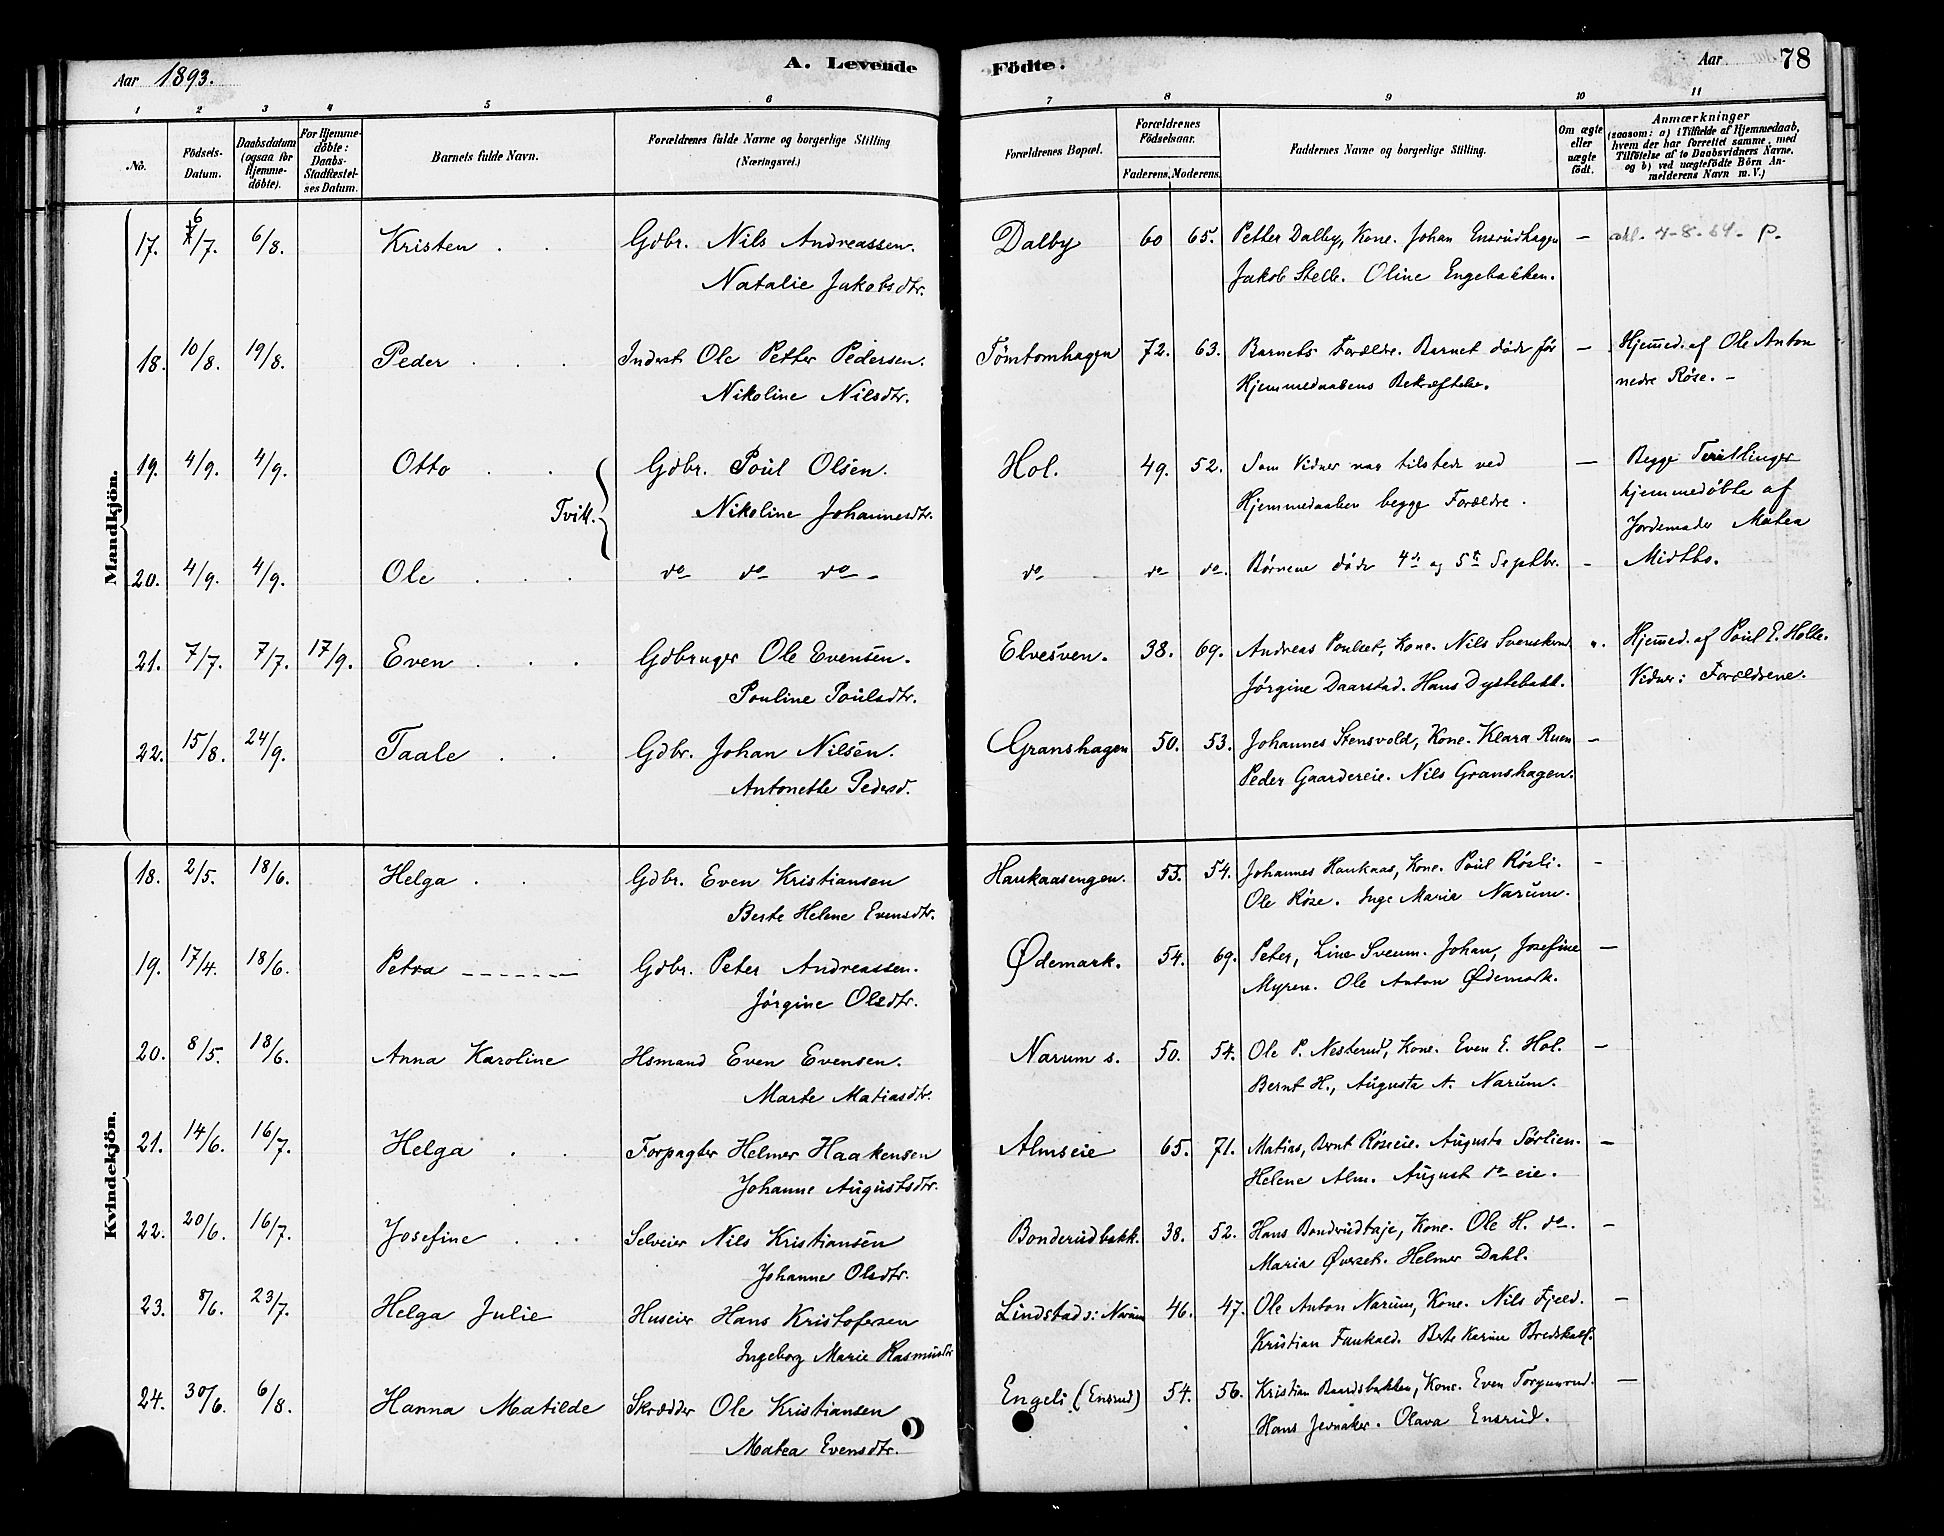 Aar 1893.
A. Levende
Födte.
Aar
78
1 2 3 4 5 6 7 8 9 10 11
No.
Födsels-Datum.
Daabsdatum (ogsaa for Hjemme-döbte).
For Hjemme-döbte: Daabs-Stadfæstel-ses Datum.
Barnets fulde Navn.
Forældrenes fulde Navne og borgerlige Stilling (Næringsvei.)
Forældrenes Bopæl.
Forældrenes Födselsaar.
Faderens. Moderens.
Faddernes Navne og borgerlige Stilling.
Om ægte eller uægte födt.
Anmærkninger
(saasom: a) i Tilfælde af Hjemmedaab, hvem der har forrettet samme, med Tilföielse af to Daabsvidners Navne, og b) ved uægtefödte Börn An-melderens Navn m. V.)
Mandkjön.
17. 6/7. 6/8. Kristen . . Gdbr. Nils Andreassen. Dalby 60 65. Petter Dalby, Kone. Johan Ensrudhagen — 4-8.64. P.
Natalie Jakobsdtr. Jakob Stelb. Oline Engebakken.
18. 10/8. 19/8. Peder . . . Inderst Ole Petter Pedersen. Tømtomhagen 72. 63. Barnets Forældre. Barnet døde før — Hjemmed. af Ole Anton
Nikoline Nilsdtr. Hjemmedaabens Bekræftelse. nedre Røse. —
19. 4/9. 4/9. Otto . . Gdbr. Poul Olsen. Hol. 49. 52. Som Vidner var tilstede ved — Begge Tvillinger
Tvill. Nikoline Johannesdtr. Hjemmedaaben begge Forældre. hjemmedøbte af
Jordemoder Matea
20. 4/9. 4/9. Ole . . . do do do do do do. Børnene døde 4de og 5te Septbr. - Midtbo.
21. 7/7. 7/7. 17/9. Even . . . Gdbruger Ole Evensen. Elvesven. 38. 69. Andreas Poulset, Kone. Nils ". Hjemmed. af Poul E. Holte.
Pouline Poulsdtr. Jørgine Daarstad. Hans Dystebakk. Vidner: Forældrene.
22. 15/8. 24/9. Taale . . Gdbr. Johan Nilsen. Granshagen 50. 53. Johannes Stensvold, Kone. Klara Ruen —
Antonette Pedersd. Peder Gaardereie. Nils Granshagen.
Kvindekjön.
18. 2/5. 18/6. Helga . . Gdbr. Even Kristiansen Haukaasengen. 55. 54. Johannes Haukaas, Kone. Poul Røsli. —
Berte Helene Evensdtr. Ole Røse. Inge Maria Narum.
19. 17/4. 18/6. Petra - - - - - - Gdbr. Peter Andreassen. Ødemark. 54. 69. Peter, Line Sveum. Johan, Josefine —
Jørgine Olsdtr. Myren. Ole Anton Ødemark.
20. 8/5. 18/6. Anna Karoline Hsmand Even Evensen. Narum s. 50. 54. Ole P. Nesterud, Kone. Even E. Hol. —
Marte Matiasdtr. Bernt H., Augusta A. Narum.
21. 14/6. 16/7. Helga . . Forpagter Helmer Haakensen Almseie 65. 71. Matias, Bernt Røseeie. Augusta Sørlien. —
Johanne Augustsdtr. Helene Alm. August do eie.
22. 20/6. 16/7. Josefine . . . Selveier Nils Kristiansen Bonderudbakk. 38. 52. Hans Bondrudtaje, Kone. Ole H. do. —
Johanne Olsdtr. Maria Øverset. Helmer Dahl.
23. 8/6. 23/7. Helga Julie Huseier Hans Kristofersen Lindstad s: Narum 46. 47. Ole Anton Narum, Kone. Nils Fjeld. —
Ingeborg Marie Rasmusdtr Kristian Faukald. Berte Karine
24. 30/6. 6/8. Hanna Matilde Skrædder Ole Kristiansen Engeli (Ensrud) 54. 56. Kristian Baardsbakken, Kone. Even —
Matea Evensdtr. Hans Jevnaker. Olava Ensrud.